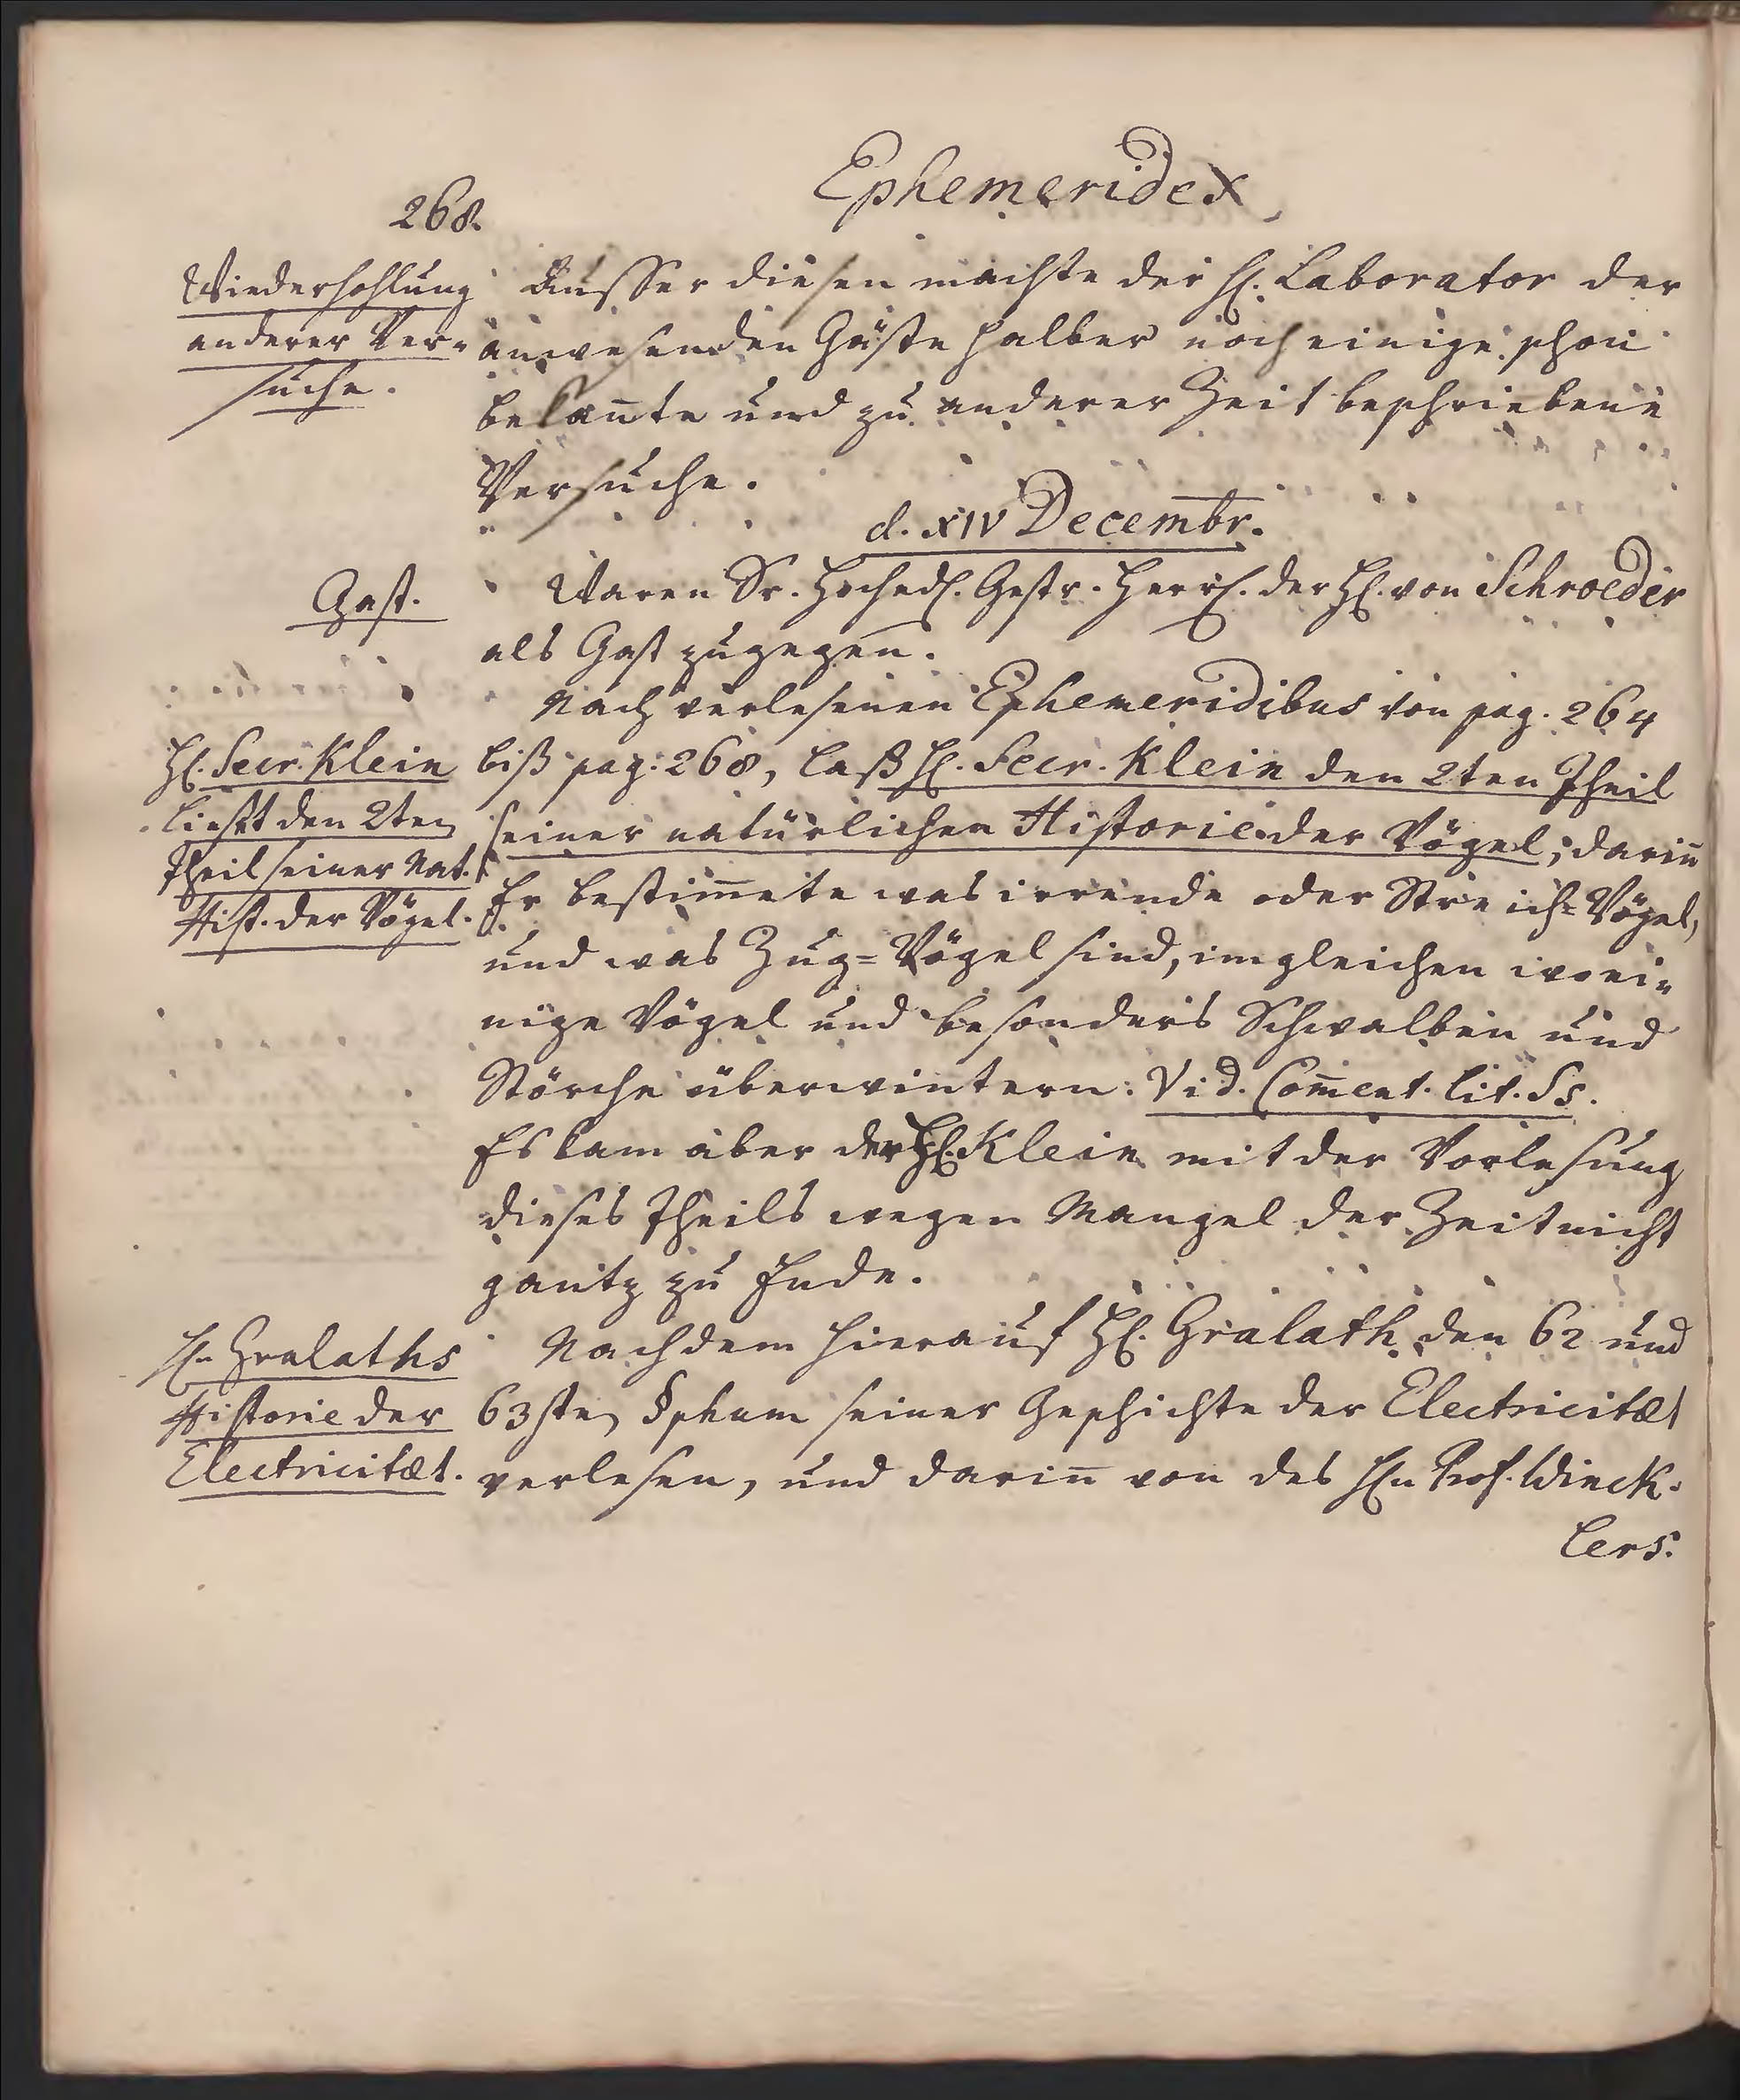 268.
Ephemerides
Wiederhohlung
anderer Ver-
suche.
Ausser diesen machte der H. Laborator der
anwesenden Gäste halber noch einige schon
bekan̅te und zu anderer Zeit beschriebene
Versuche.
d. XIV Decembr.
Gast.
Waren Sr. Hochedl. Gestr. Herrl. der H. von Schroeder
als Gast zugegen.
Nach verlesenen Ephemeridibus von pag. 264
biß pag: 268, laß H. Secr. Klein den 2ten Theil
seiner natürlichen Historie der Vögel; darin̅
Er bestim̅ete was irrende oder Streich=Vögel,
und was Zug=Vögel sind, imgleichen wo ei-
nige Vögel und besonders Schwalben und
Störche überwintern: Vid. Com̅ent. lit. Ss.
Es kam aber der H. Klein mit der Vorlesung
dieses Theils wegen Mangel der Zeit nicht
gantz zu Ende.
H. Secr. Klein
liest den 2ten
Theil seiner Nat.
Hist. der Vögel.
Nachdem hierauf H. Gralath den 62 und
63sten §phum seiner Geschichte der Electricitæt
verlesen, und darin̅ von des Hn Prof. Winck-
lers.
Hn Gralaths
Historie der
Electricitæt.